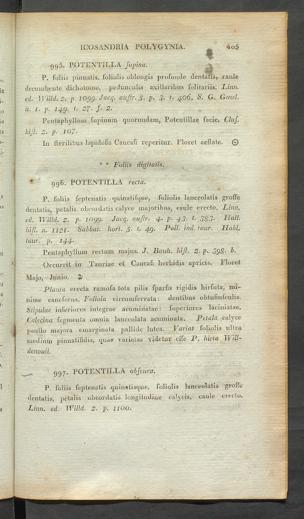 ICOSANDRIA POLYGYNIA. 405
995. POTENTILLA supina.
P. foliis pinnatis, foliolis oblongis profunde dentatis, caule
decumbente dichotomo, pedunculis axillaribus solitariis. Linn.
ed. Willd. 2. p. 1099. Jacq. austr. 5. p. 3. t. 406. S. G. Gmel.
it. 1. p. 149. t. 27. f. 2.
Pentaphyllum supinum quorundam, Potentillae facie. Clus.
hist. 2. p. 107.
In sterilibus lapidosis Caucasi reperitur. Floret aestate. ☉
* * Foliis digitatis.
996. POTENTILLA recta.
P. foliis septenatis quinatisque, foliolis lanceolatis grosse
dentatis, petalis obcordatis calyce majoribus, caule erecto. Linn.
ed. Willd. 2. p. 1099. Jacq. austr. 4. p. 43. t. 383. Hall.
hist. n. 1121. Sabbat. hort. 5. t. 49. Poll. ind. taur. Habl.
taur. p. 144.
Pentaphyllum rectum majus. J. Bauh. hist. 2. p. 398. b.
Occurrit in Tauriae et Caucasi herbidis apricis. Floret
Majo, Junio. ♃
Planta erecta ramosa tota pilis sparsis rigidis hirsuta, mi-
nime canescens. Foliola circumserrata: dentibus obtusiusculis.
Stipulae inferiores integrae acuminatae: superiores laciniatae.
Calycina segmenta omnia lanceolata acuminata. Petala calyce
paullo majora emarginata pallide lutea. Variat foliolis ultra
medium pinnatifidis, quae varietas videtur esse P. hirta Will-
denowii.
997. POTENTILLA obscura.
P. foliis septenatis quinatisque, foliolis lanceolatis grosse
dentatis, petalis obcordatis longitudine calycis, caule erecto.
Linn. ed. Willd. 2. p. 1100.